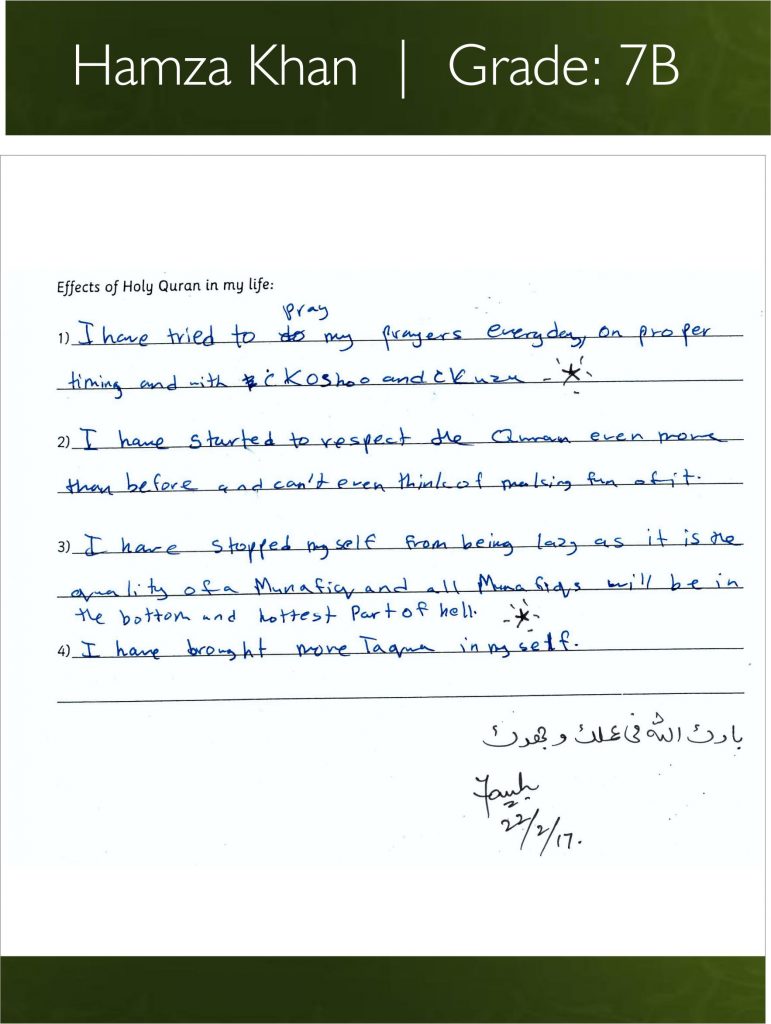 Hamza Khan | Grade: 7B
Effects of Holy Quran in my life:
pray
1) I have tried to do my prayers everyday, on proper
timing and with ċKoshoo and ċKuzu
2) I have started to respect the Quran even more
than before and can't even think of making fun of it.
3) I have stopped myself from being lazy as it is the
quality of a Munafiq and all Munafiqs will be in
the bottom and hottest Part of hell.
4) I have brought more Taqua in my self.
بارك الله في عملك و جهدك
22/2/17.